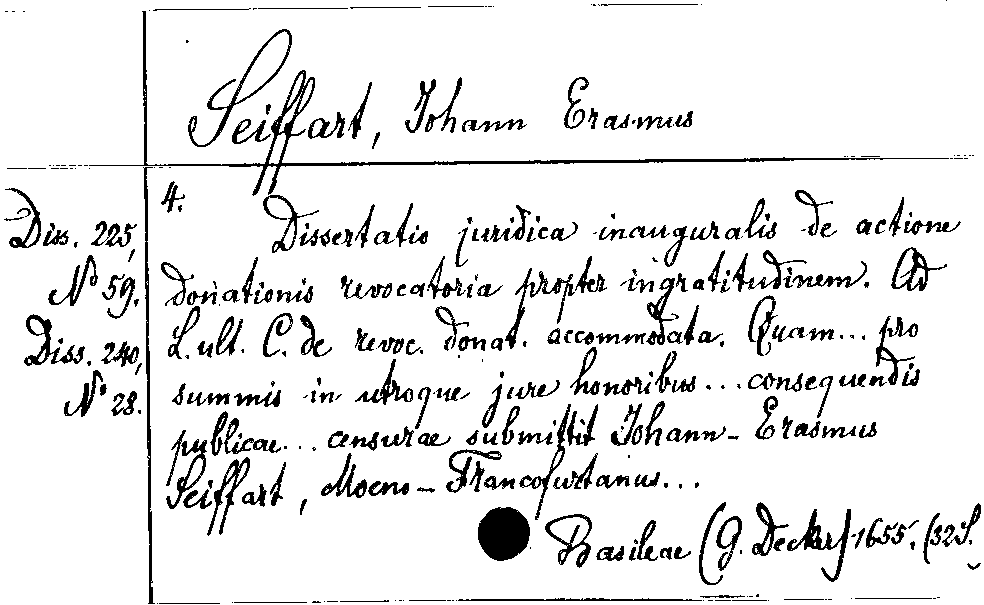 Seiffart, Johann Erasmus
4.
Diss. 225,
No 59.
Diss. 240,
No 28.
Dissertatio juridica inauguralis de actione
donationis revocatoria propter ingratitudinem. Ad
L. ult. C. de revoc. donat. accommodata. Quam... pro
summis in utroque jure honoribus... consequendis
publicae... censurae submittit Johann-Erasmus
Seiffart, Moeno-Francofurtanus...
Basileae (G. Decker) 1655. (32 S.